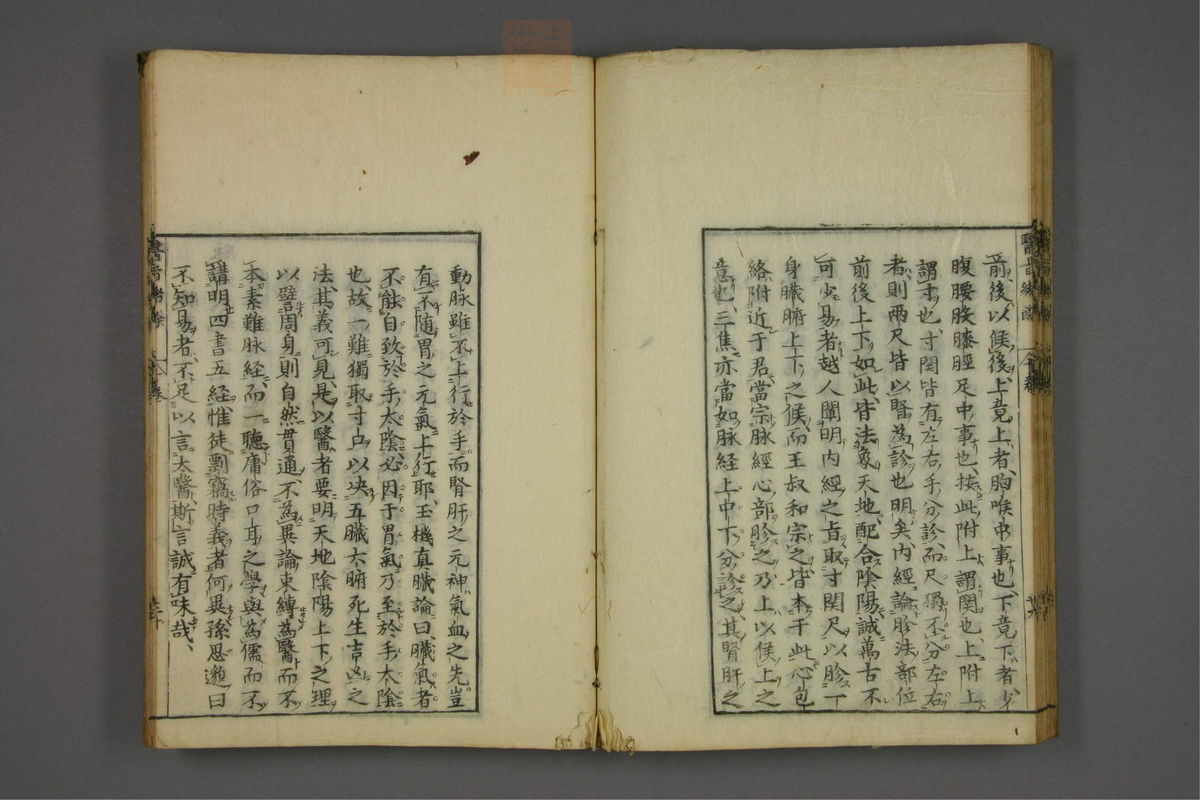 前後以候後上竟上者胸喉中事也下竟下者少
腹腰股膝脛足中事也按此附上謂関也上附上
謂寸也寸関皆有左右手分診而尺獨不分左右
者則兩尺皆以腎為診也明矣内經論胗法部位
前後上下如此皆法象天地配合陰陽誠萬古不
可少易者越人闡明内經之旨取寸関尺以胗一
身臓腑上下之候而王叔和宗之皆本于此心包
絡附近于君當宗脉經心部胗之乃上以候上之
意也三焦亦當如脉経上中下分診之其腎肝之
動脉雖不上行於手而腎肝之元神氣血之先豈
有不随胃之元氣上行耶玉機真臓論曰臓氣者
不能自致於手太陰必因于胃氣乃至於手太陰
也故一難獨取寸口以决五臓六腑死生吉凶之
法其義可見是以醫者要明天地陰陽上下之理
以譬周身則自然貫通不為異論束縛為醫而不
本素難脉經而一聽庸俗口耳之學與為儒而不
講明四書五經惟徒剽竊時義者何異孫思邈曰
不知易者不足以言太醫斯言誠有味哉